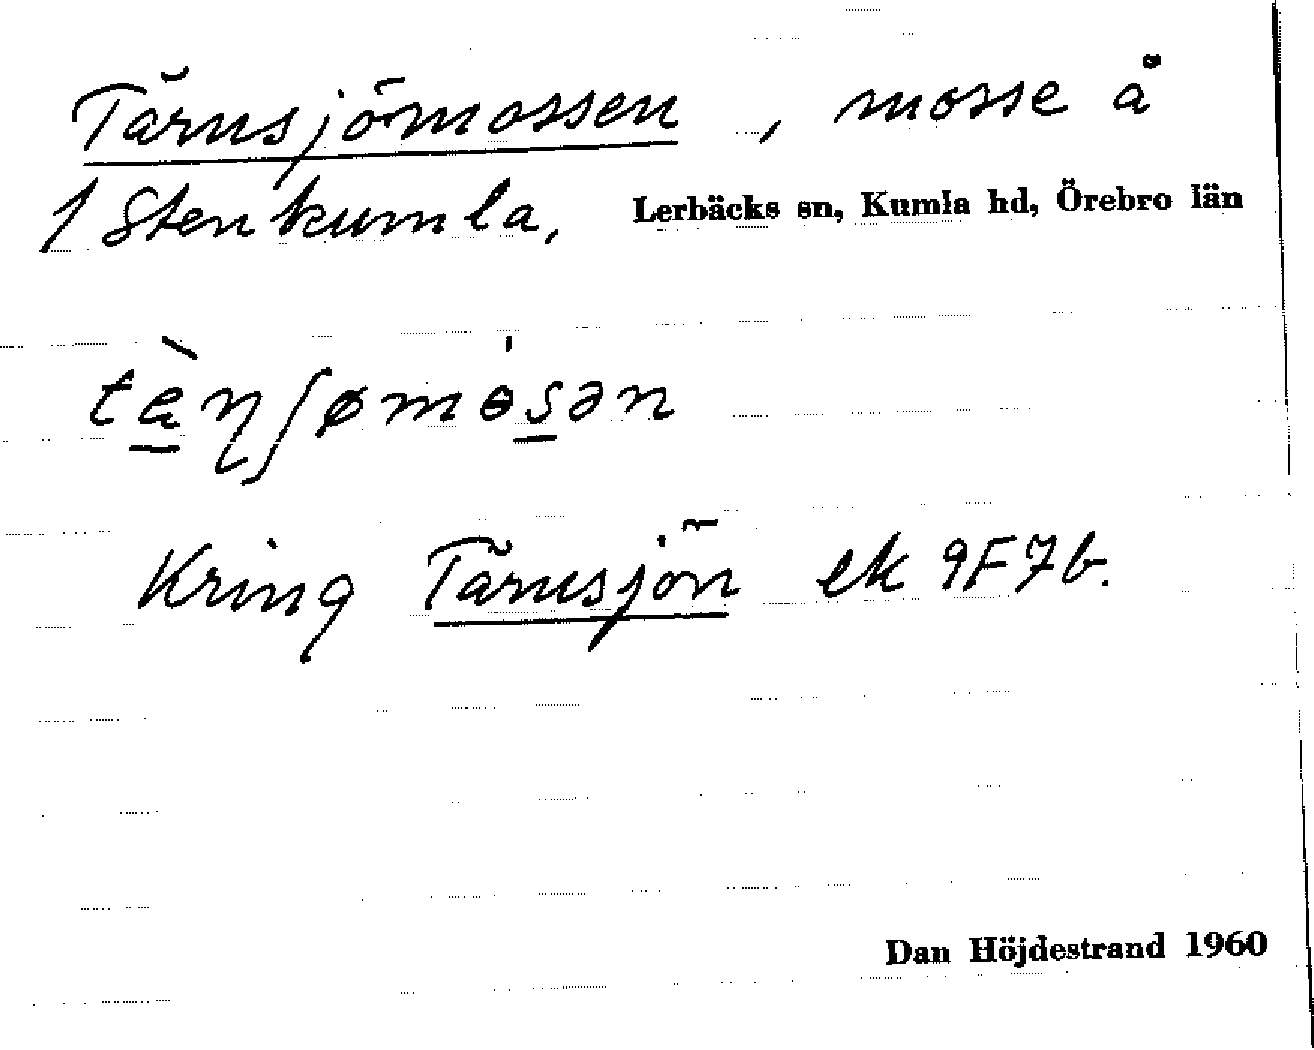 Tärnsjömossen, mosse å
1 Stenkumla, Lerbäcks sn, Kumla hd, Örebro län
tàɳʃømɵ́sən
Kring Tärnsjön ek 9F7b.
Dan Höjdestrand 1960